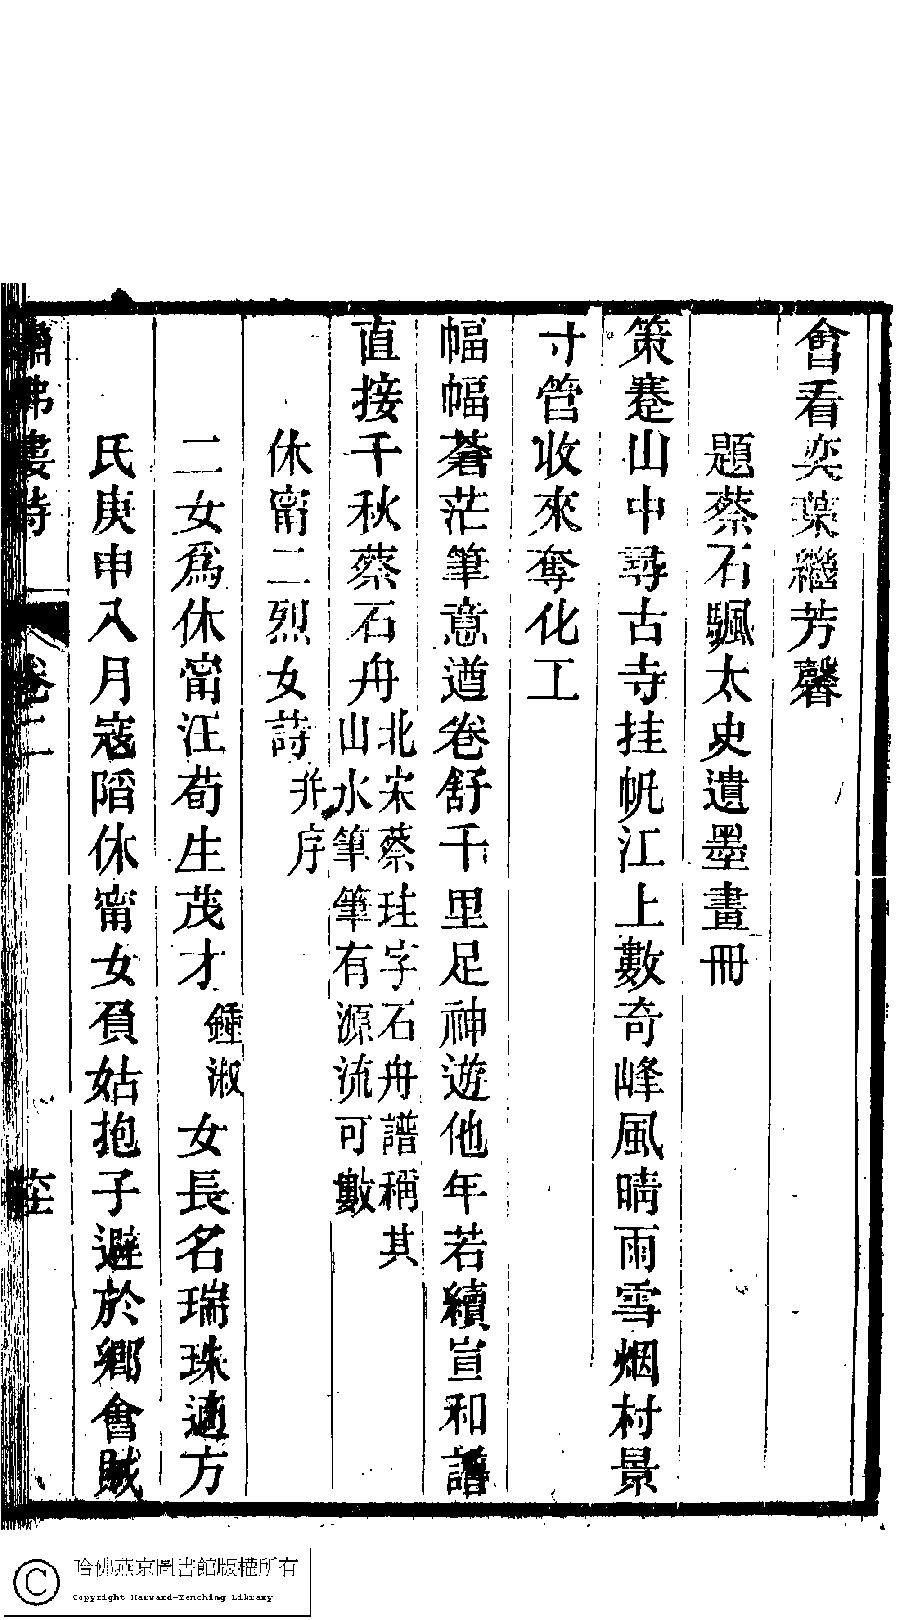 會看奕葉繼芳馨
題蔡石颿太史遺墨畫冊
策蹇山中尋古寺挂帆江上數奇峰風晴雨雪烟村景
寸管收來奪化工
幅幅蒼茫筆意遒卷舒千里足神遊他年若續宣和譜
直接千秋蔡石舟北宋蔡珪字石舟譜稱其
山水筆筆有源流可數
休甯二烈女詩并序
二女爲休甯汪荀生茂才鍾淑女長名瑞珠適方
氏庚申八月寇陷休甯女負姑抱子避於鄉會賊
卷二
哈佛燕京圖書館版權所有
Copyright Harvard-Yenching Library